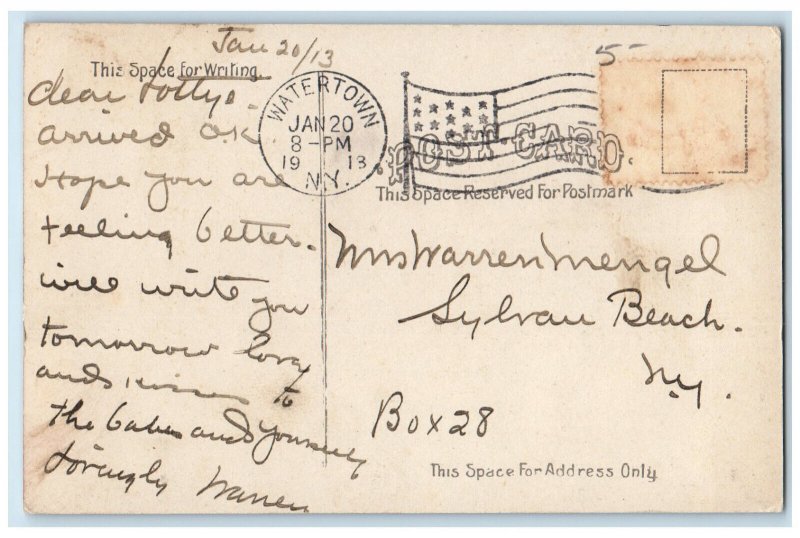 Jan 20/13
This Space For Writing.
dear Lottye.
arrived O.K.
Hope you are
feeling better.
will write you
tomorrow love
and kisses to
the babes and yourself
Lovingly Warren
WATERTOWN
JAN 20
8-PM
1913
N.Y.
5-
POST CARD.
This Space Reserved For Postmark
Mrs Warren Mengel
Sylvan Beach.
N.Y.
Box 28
This Space For Address Only